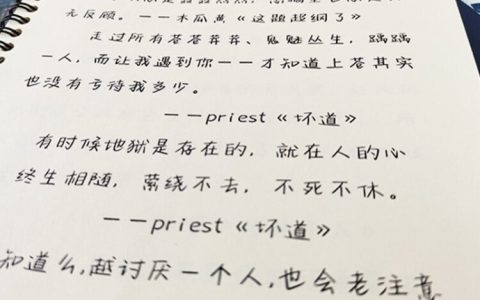 无反顾。——木瓜黄《这题超纲了》
走过所有苍苍莽莽、鬼魅丛生，踽踽
一人，而让我遇到你——才知道上苍其实
也没有亏待我多少。
——priest《坏道》
有时候地狱是存在的，就在人的心
终生相随，萦绕不去，不死不休。
——priest《坏道》
知道么，越讨厌一个人，也会老注意